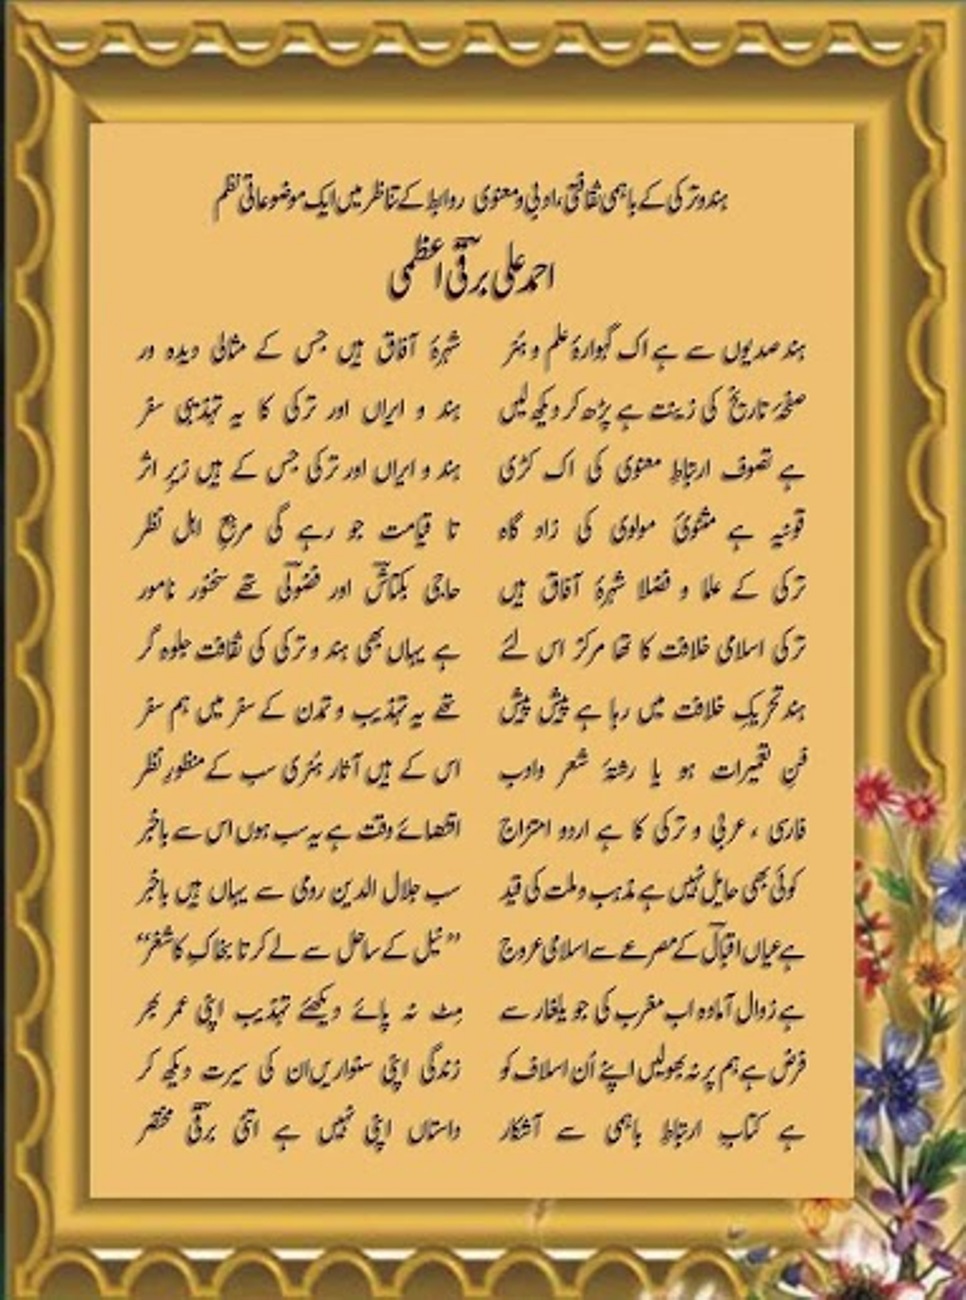 ہندو ترکی کے باہمی ثقافتی، ادبی و معنوی روابط کے تناظر میں ایک موضوعاتی نظم
احمد علی برقیؔ اعظمی
ہند صدیوں سے ہے اک گہوارۂ علم و ہنر شہرۂ آفاق ہیں جس کے مثالی دیدہ ور
صفحۂ تاریخ کی زینت ہے پڑھ کر دیکھ لیں ہند و ایراں اور ترکی کا یہ تہذیبی سفر
ہے تصوف ارتباطِ معنوی کی اک کڑی ہند و ایراں اور ترکی جس کے ہیں زیرِ اثر
قونیہ ہے مثنویٔ مولوی کی زاد گاہ تا قیامت جو رہے گی مرجعِ اہل نظر
ترکی کے علما و فضلا شہرۂ آفاق ہیں حاجی بکتاشؔ اور فضولیؔ تھے سخنور نامور
ترکی اسلامی خلافت کا تھا مرکز اس لئے ہے یہاں بھی ہند و ترکی کی ثقافت جلوہ گر
ہند تحریکِ خلافت میں رہا ہے پیش پیش تھے یہ تہذیب و تمدن کے سفر میں ہم سفر
فنِ تعمیرات ہو یا رشتۂ شعر وادب اس کے ہیں آثار ہنری سب کے منظورِ نظر
فارسی ، عربی و ترکی کا ہے اردو امتزاج اقتضائے وقت ہے یہ سب ہوں اس سے باخبر
کوئی بھی حایل نہیں ہے مذہب و ملت کی قید سب جلال الدین رومی سے یہاں ہیں باخبر
ہے عیاں اقبالؔ کے مصرعے سے اسلامی عروج ”نیل کے ساحل سے لے کر تا بخاکِ کاشغر“
ہے زوال آمادہ اب مغرب کی جو یلغار سے مِٹ نہ پائے دیکھئے تہذیب اپنی عمر بھر
فرض ہے ہم پر نہ بھولیں اپنے اُن اسلاف کو زندگی اپنی سنواریں ان کی سیرت دیکھ کر
ہے کتابِ ارتباطِ باہمی سے آشکار داستاں اپنی نہیں ہے اتنی برقیؔ مختصر